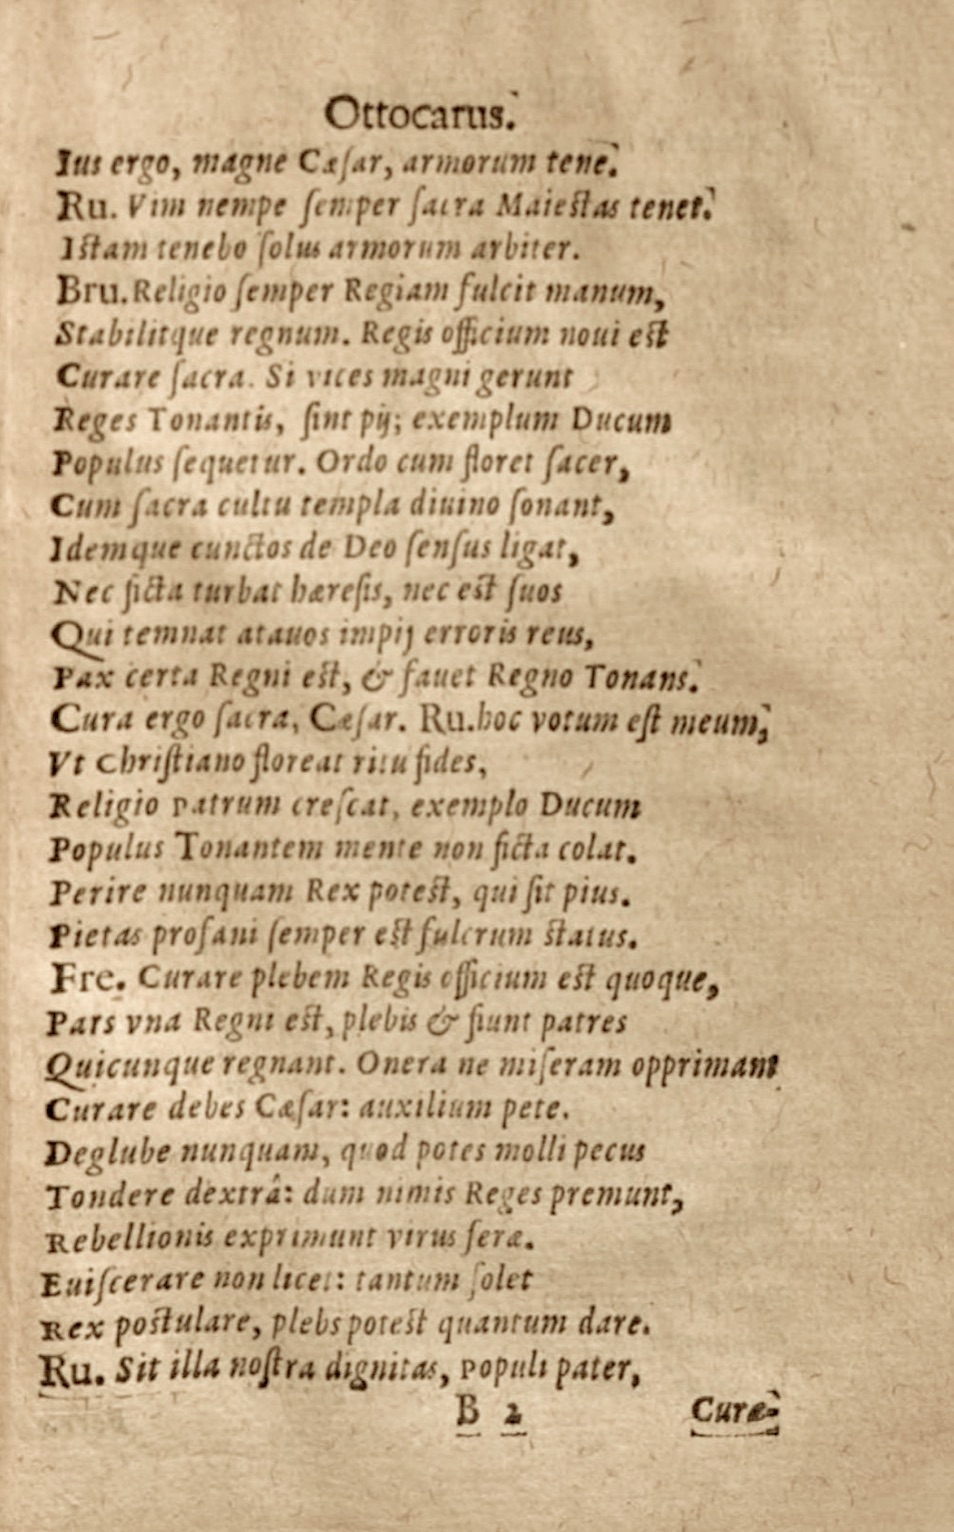 Ottocarus.
Ius ergo, magne Cæſar, armorum tene.
Ru. Vim nempe ſemper ſacra Maieſtas tenet.
Iſtam tenebo ſolus armorum arbiter.
Bru. Religio ſemper Regiam fulcit manum,
Stabilitque regnum. Regis officium noui eſt
Curare ſacra. Si vices magni gerunt
Reges Tonantis, ſint pij; exemplum Ducum
Populus ſequetur. Ordo cum floret ſacer,
Cum ſacra cultu templa diuino ſonant,
Idemque cunctos de Deo ſenſus ligat,
Nec ficta turbat hæreſis, nec eſt ſuos
Qui temnat atauos impij erroris reus,
Pax certa Regni eſt, & fauet Regno Tonans.
Cura ergo ſacra, Cæſar. Ru. hoc votum eſt meum,
Vt Chriſtiano floreat ritu fides,
Religio patrum creſcat, exemplo Ducum
Populus Tonantem mente non ficta colat.
Perire nunquam Rex poteſt, qui ſit pius.
Pietas profani ſemper eſt fulcrum ſtatus.
Fre. Curare plebem Regis officium eſt quoque,
Pars vna Regni eſt, plebis & fiunt patres
Quicunque regnant. Onera ne miſeram opprimant
Curare debes Cæſar: auxilium pete.
Deglube nunquam, quod potes molli pecus
Tondere dextrâ: dum nimis Reges premunt,
Rebellionis exprimunt virus feræ.
Euiſcerare non licet: tantum ſolet
Rex poſtulare, plebs poteſt quantum dare.
Ru. Sit illa noſtra dignitas, populi pater,
B 2 Curæ-